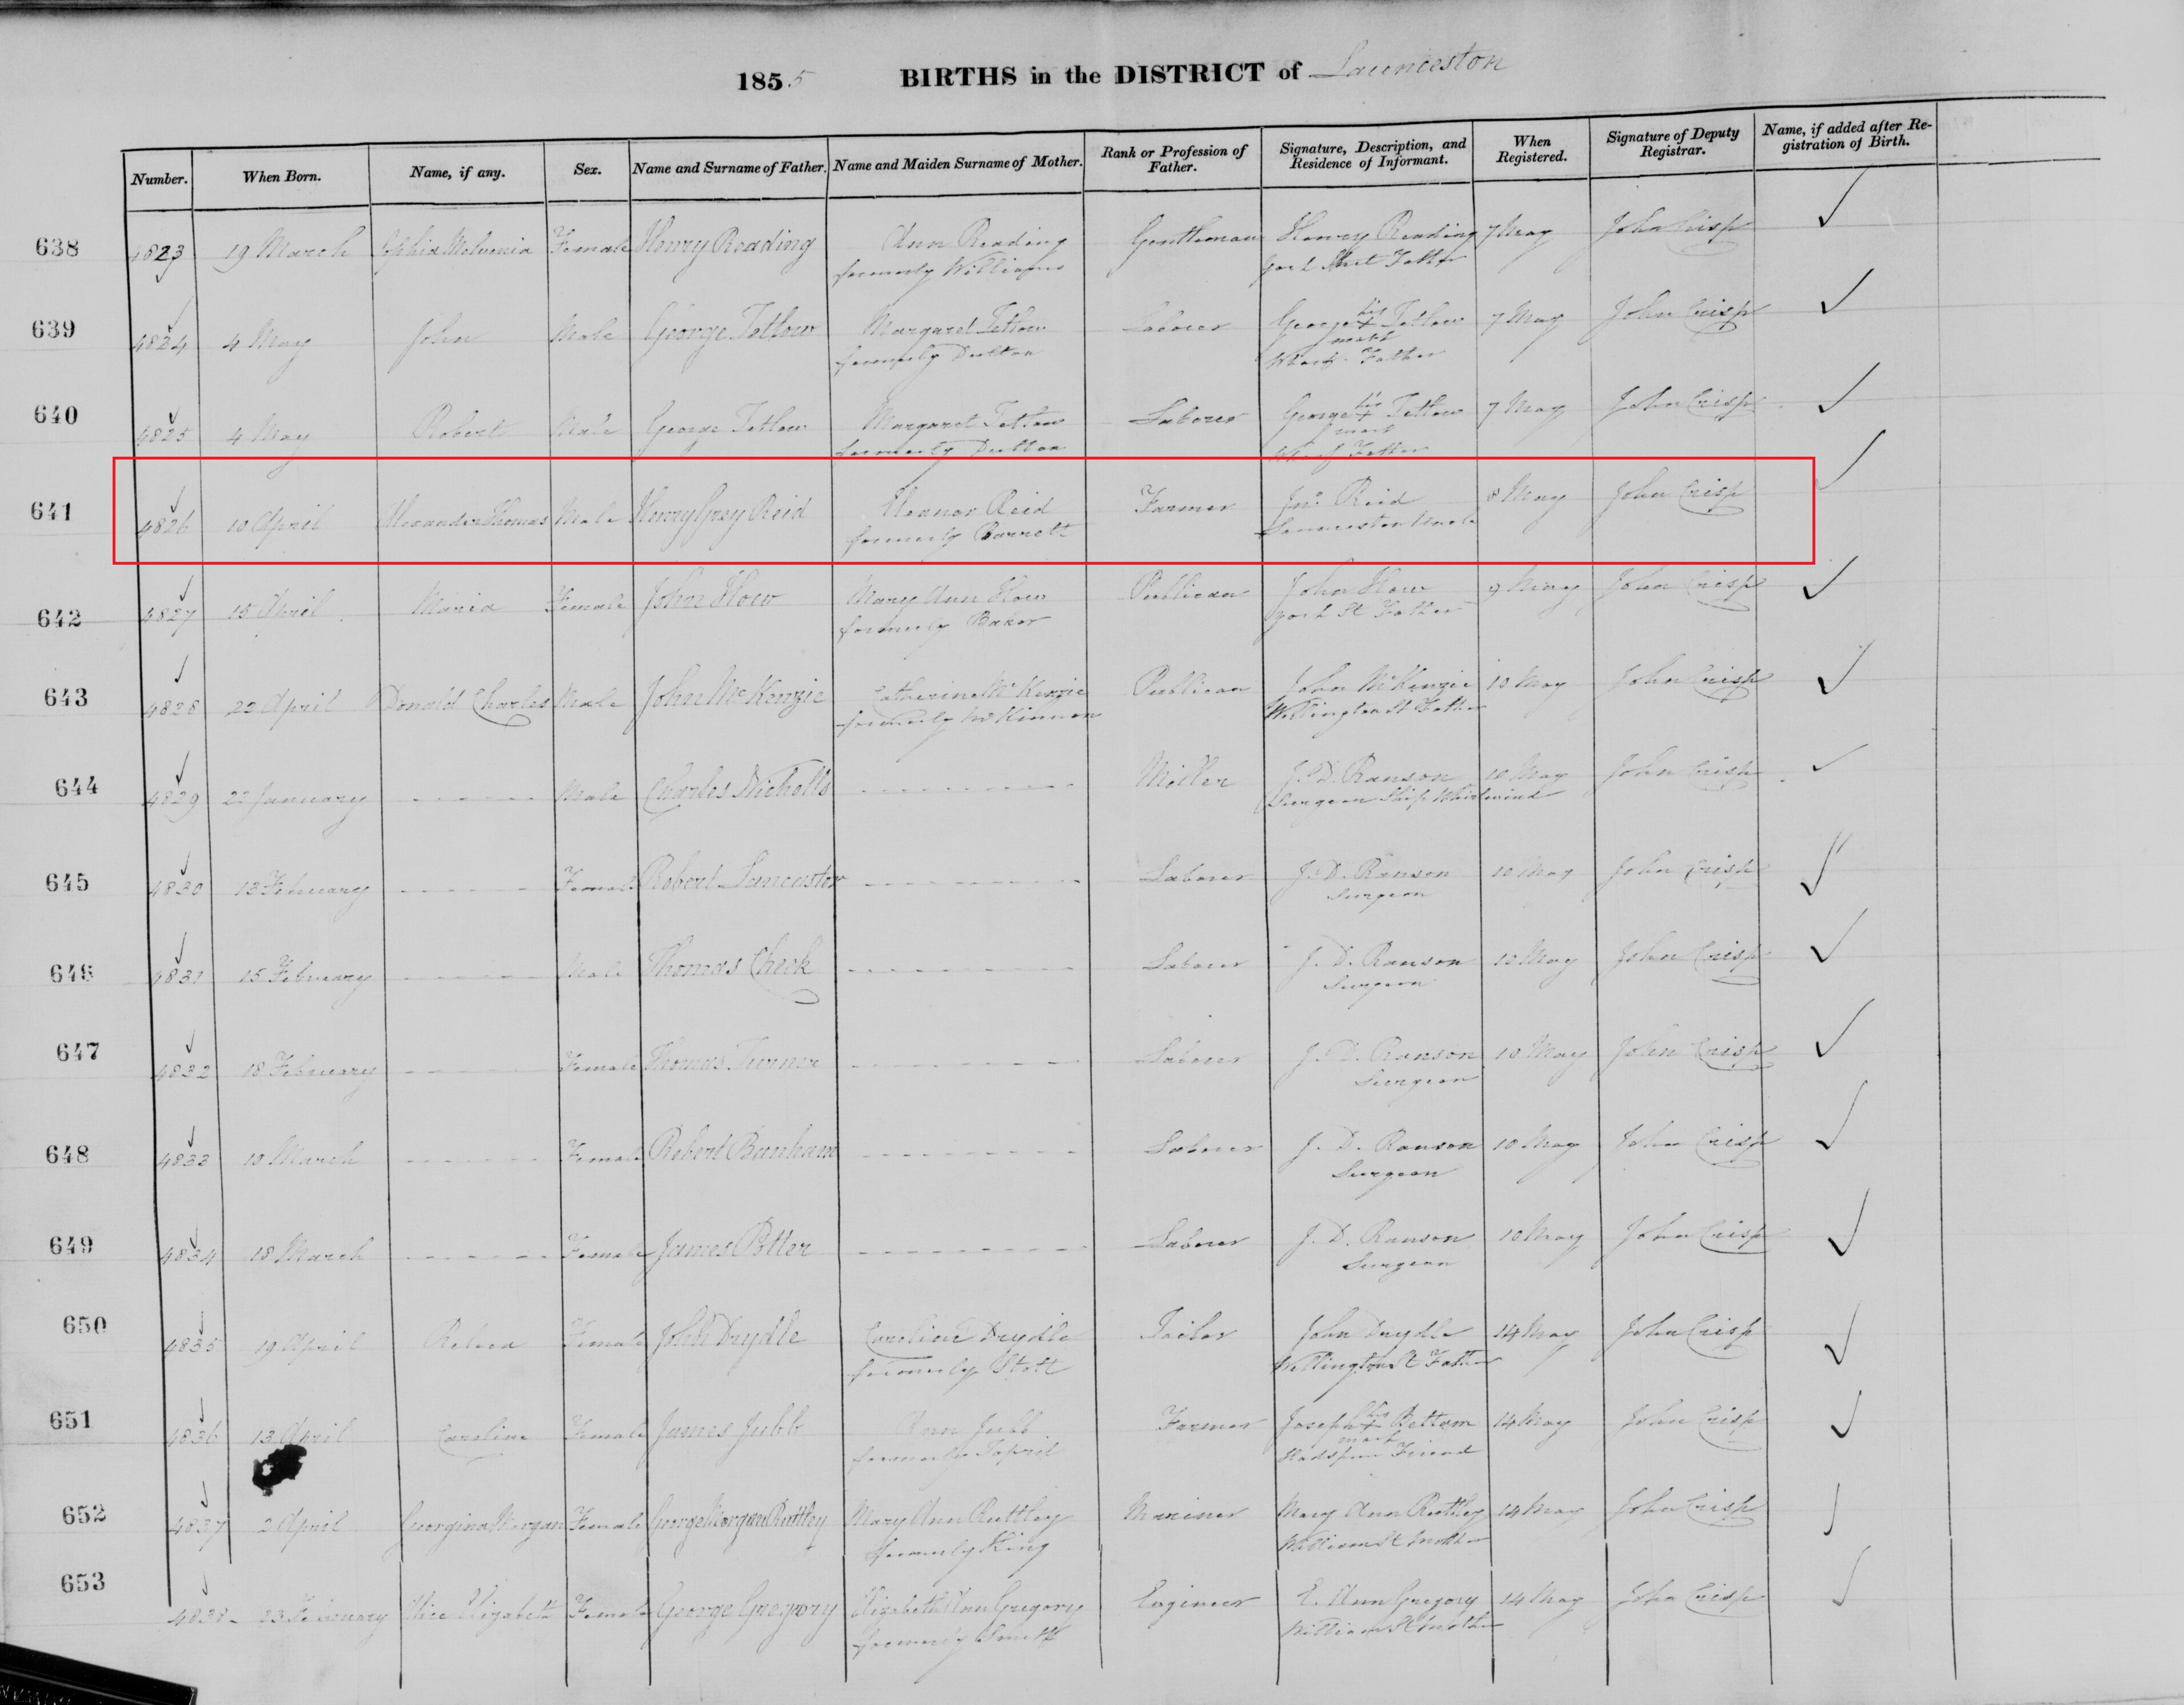 1855 BIRTHS in the DISTRICT of Launceston
Number. When Born. Name, if any. Sex. Name and Surname of Father. Name and Maiden Surname of Mother. Rank or Profession of Father. Signature, Description, and Residence of Informant. When Registered. Signature of Deputy Registrar. Name, if added after Registration of Birth.
638 4823 19 March Sophia Melvenia Female Henry Reading Ann Reading Gentleman Henry Reading 7 May John Crisp
formerly Williams York Street Father
639 4824 4 May John Male George Tetlow Margaret Tetlow Laborer George his x Tetlow 7 May John Crisp
mark
formerly Dutton Wharf Father
640 4825 4 May Robert Male George Tetlow Margaret Tetlow Laborer George his x Tetlow 7 May John Crisp
mark
formerly Dutton Wharf Father
641 4826 10 April Alexander Thomas Male Henry Grey Reid Eleanor Reid Farmer Jno. Reid 8 May John Crisp
formerly Barrett Launceston Uncle
642 4827 15 April Maria Female John How Mary Ann How Publican John How 9 May John Crisp
formerly Baker York St Father
643 4828 22 April Donald Charles Male John McKenzie Catherine McKenzie Publican John McKenzie 10 May John Crisp
formerly McKinnon Wellington St Father
644 4829 22 January Male Charles Nicholls Miller J. D. Ranson 10 May John Crisp
Surgeon Ship Whirlwind
645 4830 13 February Female Robert Lancaster Laborer J. D. Ranson 10 May John Crisp
Surgeon
646 4831 15 February Male Thomas Cheek Laborer J. D. Ranson 10 May John Crisp
Surgeon
647 4832 18 February Female Thomas Turner Laborer J. D. Ranson 10 May John Crisp
Surgeon
648 4833 10 March Female Robert Banham Laborer J. D. Ranson 10 May John Crisp
Surgeon
649 4834 18 March Female James Potter Laborer J. D. Ranson 10 May John Crisp
Surgeon
650 4835 19 April Female John Drydle Caroline Drydle Tailor John Drydle 14 May John Crisp
formerly Stott Wellington St Father
651 4836 13 April Caroline Female James Jubb Ann Jubb Farmer Joseph his x Bettom 14 May John Crisp
mark
formerly Hadspen Friend
652 4837 2 April Georgina Morgan Female George Morgan Ruttley Mary Ann Ruttley Mariner Mary Ann Ruttley 14 May John Crisp
formerly King William St Mother
653 4838 23 February Alice Elizabeth Female George Gregory Elizabeth Ann Gregory Engineer E. Ann Gregory 14 May John Crisp
formerly Smith William St Mother